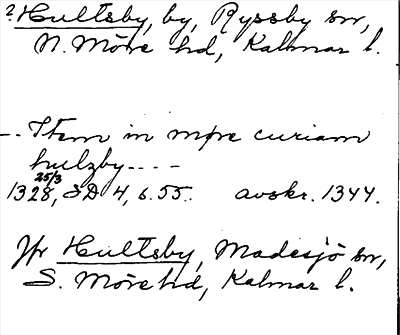 ? Hultsby, by, Ryssby sn,
N. Möre hd, Kalmar l.
--. Item in møre curiam
hulzby----
25/3
1328, SD 4, s. 55. avskr. 1344.
Jfr Hultsby, Madesjö sn,
S. Möre hd, Kalmar l.